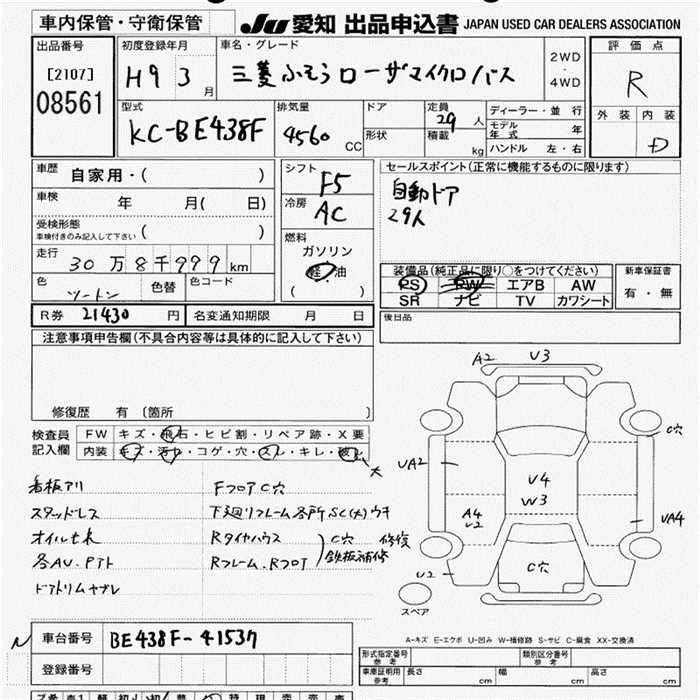 車内保管・守衛保管
JU 愛知 出品申込書 JAPAN USED CAR DEALERS ASSOCIATION
出品番号
[2107]
08561
初度登録年月
H9 3 月
車名・グレード
三菱ふそうローザマイクロバス
2WD
・
4WD
評価点
R
外装 内装
D
型式
KC-BE438F
排気量
4560 CC
ドア
形状
定員 29 人
積載 kg
ディーラー・並行
モデル年式 年
ハンドル 左・右
車歴 自家用・( )
車検 年 月( 日)
受検形態
車検付きのみ記入して下さい ( )
走行 30万8千999 km
色 ツートン 色替 色コード
シフト F5
冷房 AC
燃料
ガソリン
軽・油
( )
セールスポイント(正常に機能するものに限ります)
自動ドア
29人
装備品(純正品に限り○をつけてください)
PS PW エアB AW
SR ナビ TV カワシート
新車保証書
有・無
R券 21430 円 名変通知期限 月 日
後日品
注意事項申告欄(不具合内容等は具体的に記入して下さい)
修復歴 有 〔箇所 〕
検査員
記入欄
FW キズ・飛石・ヒビ割・リペア跡・X要
内装 キズ・汚れ・コゲ・穴・スレ・キレ・破レ
看板アリ
スタッドレス
オイルモレ
各AU.P7ト
ドアトリムヤブレ
Fフロア C穴
下廻リフレーム各所SC(大)ウキ
Rタイヤハウス
Rフレーム.Rフロア
C穴 修復
鉄板補修
A2 U3
C穴
UA2
U4
W3
A4
U2
UA4
C穴
U2
スペア
A-キズ E-エクボ U-凹み W-補修跡 S-サビ C-腐食 XX-交換済
N 車台番号 BE438F-41537
登録番号
形式指定番号
参考
類別区分番号
参考
車庫証明用
参考
長さ cm 幅 cm 高さ cm